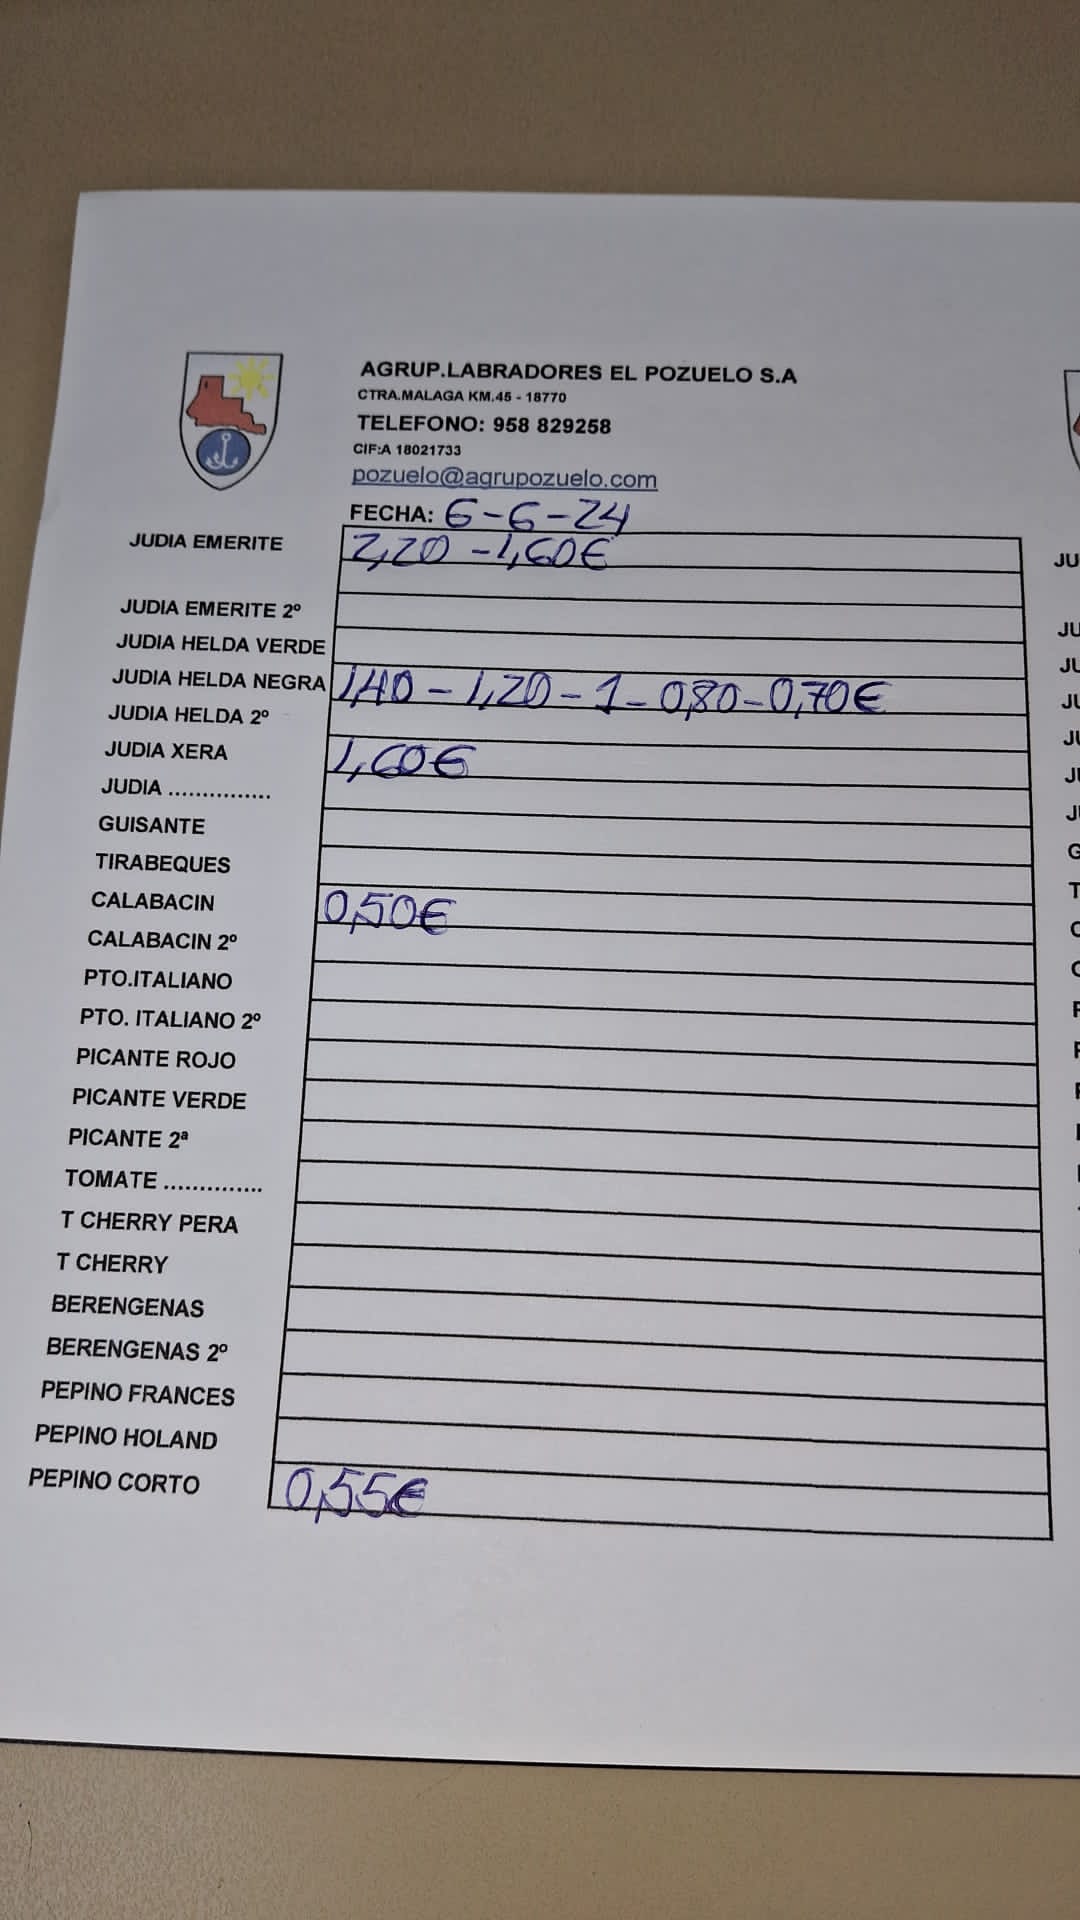 AGRUP.LABRADORES EL POZUELO S.A
CTRA.MALAGA KM.45 - 18770
TELEFONO: 958 829258
CIF:A 18021733
pozuelo@agrupozuelo.com
FECHA: 6-6-24
JUDIA EMERITE 2,20 - 1,60€
JUDIA EMERITE 2º
JUDIA HELDA VERDE
JUDIA HELDA NEGRA 1,40 - 1,20 - 1 - 0,80 - 0,70€
JUDIA HELDA 2º
JUDIA XERA 1,60€
JUDIA ...............
GUISANTE
TIRABEQUES
CALABACIN 0,50€
CALABACIN 2º
PTO.ITALIANO
PTO. ITALIANO 2º
PICANTE ROJO
PICANTE VERDE
PICANTE 2ª
TOMATE ..............
T CHERRY PERA
T CHERRY
BERENGENAS
BERENGENAS 2º
PEPINO FRANCES
PEPINO HOLAND
PEPINO CORTO 0,55€